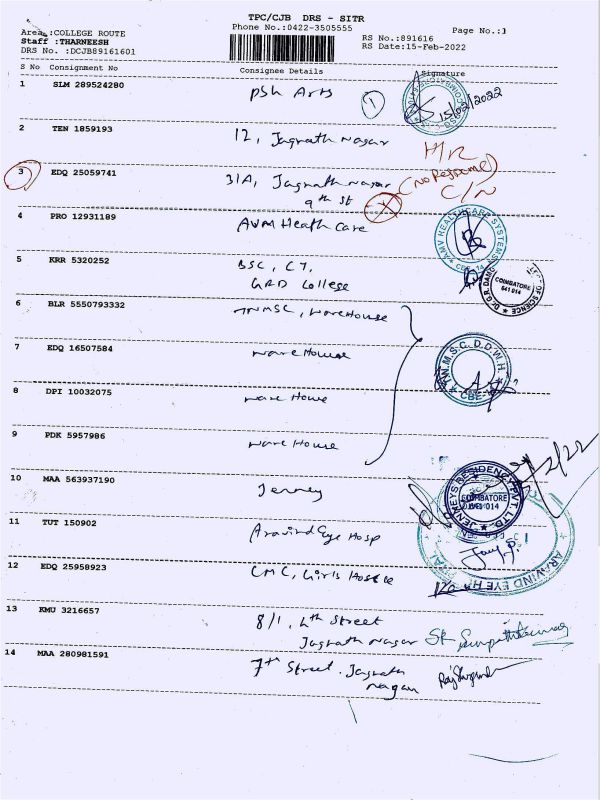 TPC/CJB DRS - SITR
Phone No.:0422-3505555
Page No.:1
Area :COLLEGE ROUTE
Staff :THARNEESH
DRS No. :DCJB89161601
RS No.:891616
RS Date:15-Feb-2022
S No Consignment No Consignee Details Signature
1 SLM 289524280 PSG Arts 1 15/02/2022
2 TEN 1859193 12, Jagnath Nagar
H/R
3 EDQ 25059741 31A, Jagnath Nagar (No Response)
9th St C/N
4 PRO 12931189 AVM Heath Care
AMV HEALTHCARE SYSTEMS
CBE-14
5 KRR 5320252 BSC, CT,
GRD College
COIMBATORE
641 014
OF SCIENCE
6 BLR 5550793332 TNMSC, WareHouse
7 EDQ 16507584 ware House
8 DPI 10032075 ware House
T.N.M.S.C. D.D.W.H.
CBE-
9 PDK 5957986 ware House
10 MAA 563937190 Jenney
JENNEYS RESIDENCY PVT. LTD.
COIMBATORE
641 014
/2/22
11 TUT 150902 Aravind Eye Hosp
ARAVIND EYE
12 EDQ 25958923 CMC, Girls Hostle
13 KMU 3216657 8/1, 4th Street
Jagnath Nagar
14 MAA 280981591 7th Street. Jagnath
Nagar